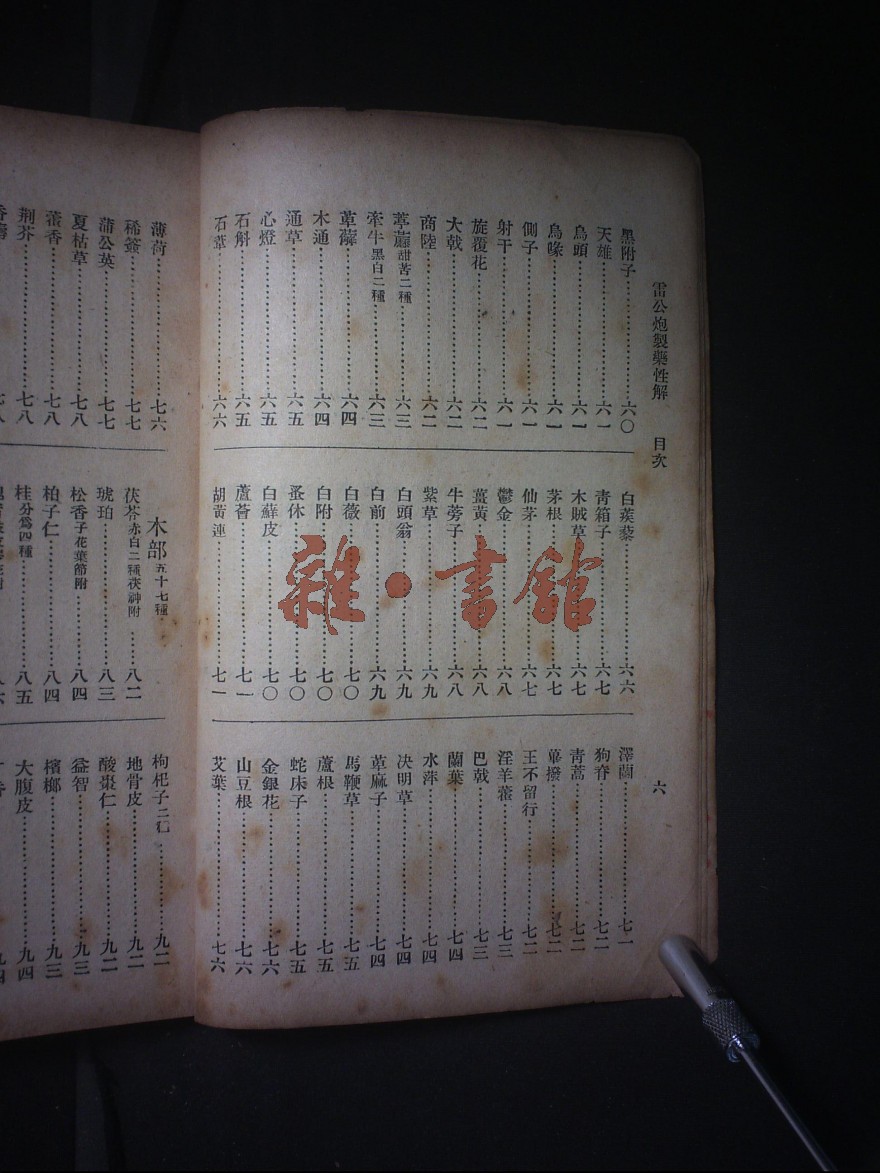 雷公炮製藥性解 目次 六
黑附子…………六〇
天雄…………六一
烏頭…………六一
烏喙…………六一
側子…………六一
射干…………六一
旋覆花…………六二
大戟…………六二
商陸…………六二
葶藶甜苦二種…………六三
牽牛黑白二種…………六三
萆薢…………六四
木通…………六四
通草…………六五
心燈…………六五
石斛…………六五
石葦…………六六
白蒺藜…………六六
青箱子…………六七
木賊草…………六七
茅根…………六七
仙茅…………六七
鬱金…………六八
薑黃…………六八
牛蒡子…………六八
紫草…………六九
白頭翁…………六九
白前…………六九
白薇…………七〇
白附…………七〇
蚤休…………七〇
白蘚皮…………七〇
蘆薈…………七一
胡黃連…………七一
澤蘭…………七一
狗脊…………七二
青蒿…………七二
蓽撥…………七二
王不留行…………七二
淫羊藿…………七三
巴戟…………七三
蘭葉…………七四
水萍…………七四
决明草…………七四
萆麻子…………七四
馬鞭草…………七五
蘆根…………七五
蛇床子…………七五
金銀花…………七六
山豆根…………七六
艾葉…………七六
薄荷…………七六
稀簽…………七七
蒲公英…………七七
夏枯草…………七八
藿香…………七八
荆芥…………七八
木部五十七種
茯苓赤白二種茯神附…………八二
琥珀…………八三
松香子花葉節附…………八四
柏子仁…………八四
桂分爲四種…………八五
枸杞子…………九二
地骨皮…………九二
酸棗仁…………九二
益智…………九三
檳榔…………九三
大腹皮…………九四
雜·書館